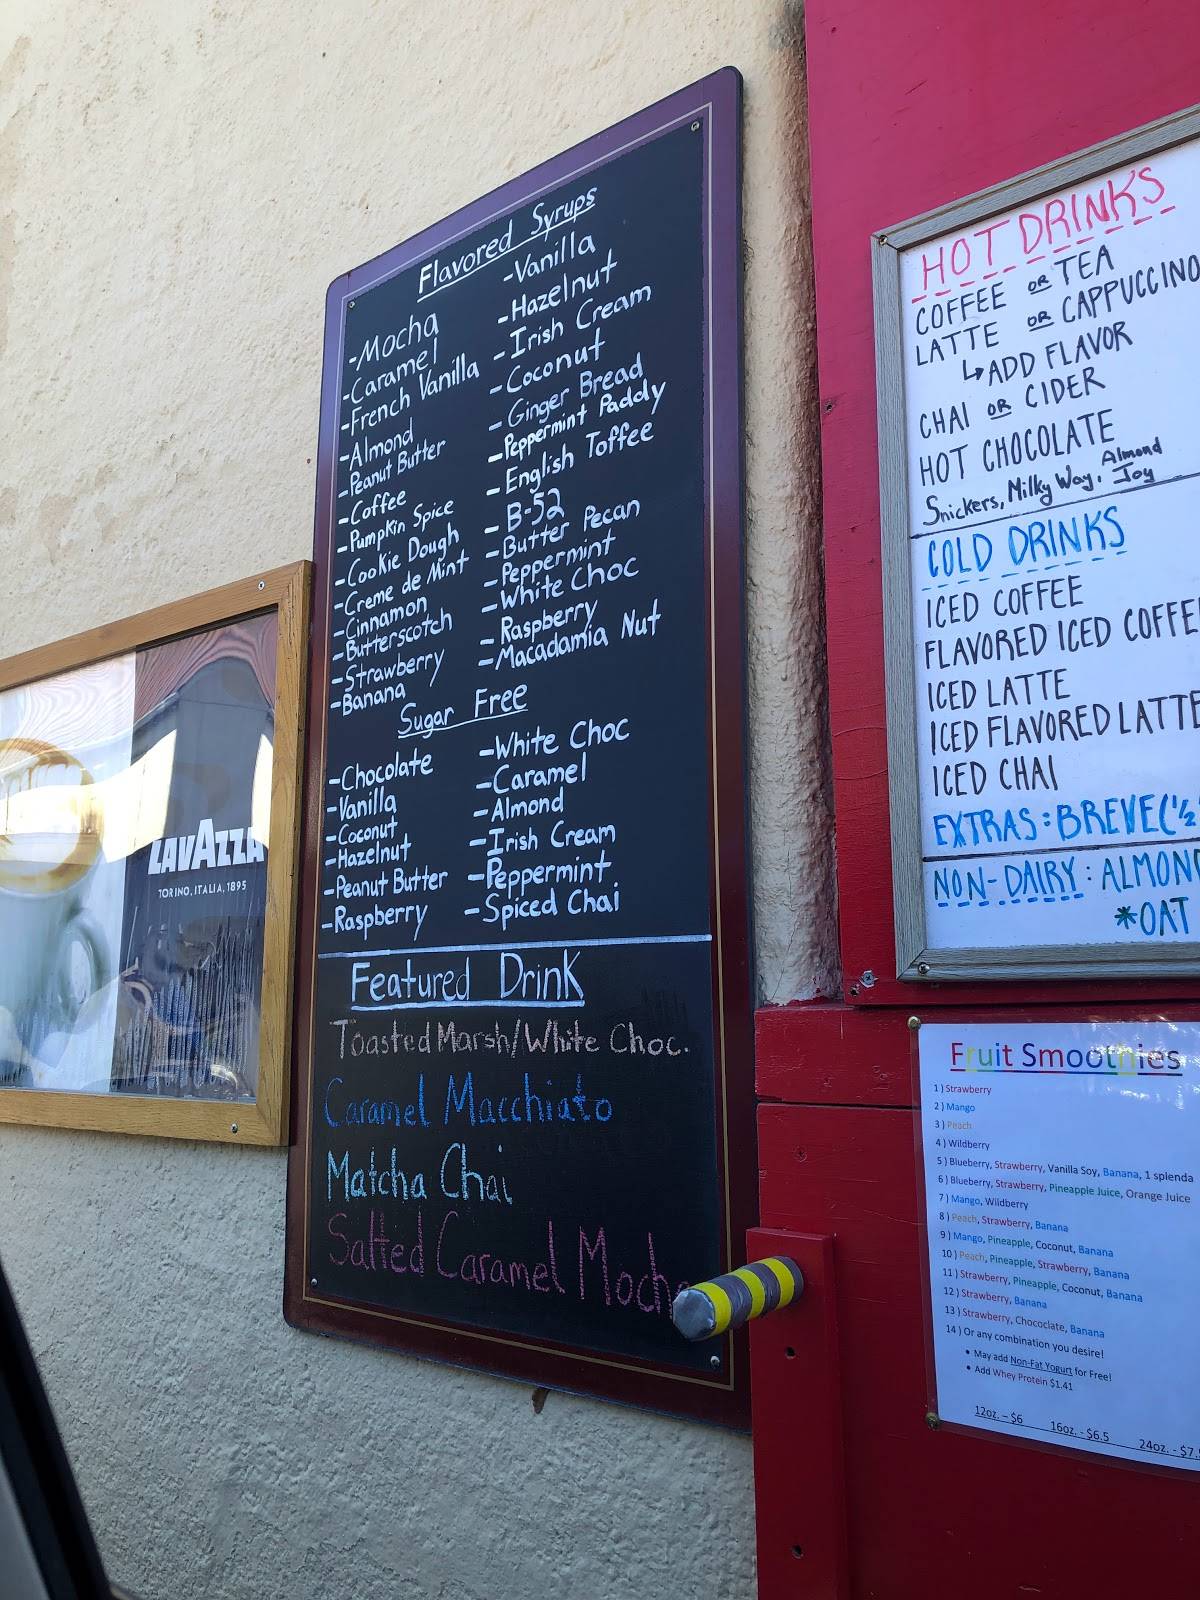 Flavored Syrups
-Mocha
-Caramel
-French Vanilla
-Almond
-Peanut Butter
-Coffee
-Pumpkin Spice
-Cookie Dough
-Creme de Mint
-Cinnamon
-Butterscotch
-Strawberry
-Banana
-Vanilla
-Hazelnut
-Irish Cream
-Coconut
-Ginger Bread
-Peppermint Paddy
-English Toffee
-B-52
-Butter Pecan
-Peppermint
-White Choc
-Raspberry
-Macadamia Nut
Sugar Free
-Chocolate
-Vanilla
-Coconut
-Hazelnut
-Peanut Butter
-Raspberry
-White Choc
-Caramel
-Almond
-Irish Cream
-Peppermint
-Spiced Chai
Featured Drink
Toasted Marsh/White Choc.
Caramel Macchiato
Matcha Chai
Salted Caramel Mocha
LAVAZZA
TORINO, ITALIA, 1895
HOT DRINKS
COFFEE OR TEA
LATTE OR CAPPUCCINO
↳ADD FLAVOR
CHAI OR CIDER
HOT CHOCOLATE
Snickers, Milky Way, Almond Joy
COLD DRINKS
ICED COFFEE
FLAVORED ICED COFFEE
ICED LATTE
ICED FLAVORED LATTE
ICED CHAI
EXTRAS: BREVE(½
NON-DAIRY: ALMOND
*OAT
Fruit Smoothies
1) Strawberry
2) Mango
3) Peach
4) Wildberry
5) Blueberry, Strawberry, Vanilla Soy, Banana, 1 splenda
6) Blueberry, Strawberry, Pineapple Juice, Orange Juice
7) Mango, Wildberry
8) Peach, Strawberry, Banana
9) Mango, Pineapple, Coconut, Banana
10) Peach, Pineapple, Strawberry, Banana
11) Strawberry, Pineapple, Coconut, Banana
12) Strawberry, Banana
13) Strawberry, Chococlate, Banana
14) Or any combination you desire!
• May add Non-Fat Yogurt for Free!
• Add Whey Protein $1.41
12oz. – $6 16oz. - $6.5 24oz. - $7.